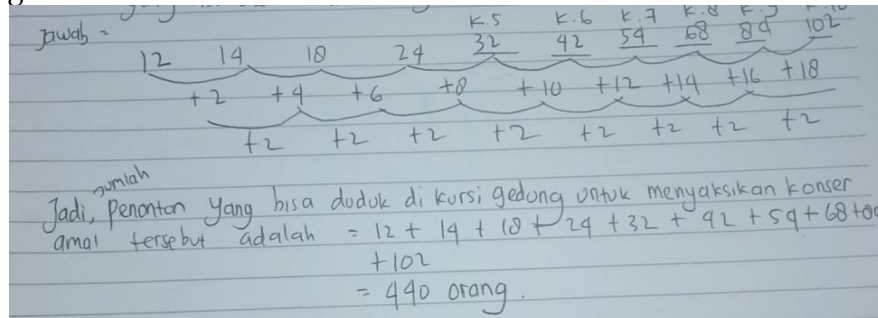 Jawab =
K.5 K.6 K.7 K.8 K.9 K.10
12 14 18 24 32 42 54 68 84 102
+2 +4 +6 +8 +10 +12 +14 +16 +18
+2 +2 +2 +2 +2 +2 +2 +2
Jadi, jumlah penonton yang bisa duduk di kursi gedung untuk menyaksikan konser
amal tersebut adalah = 12 + 14 + 18 + 24 + 32 + 42 + 54 + 68 +
+ 102
= 440 orang.